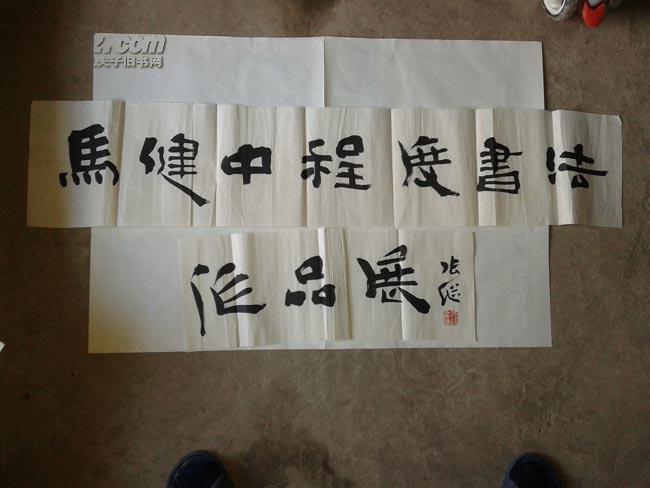 z.com
夫子旧书网
馬健中程度書法
作品展
张继